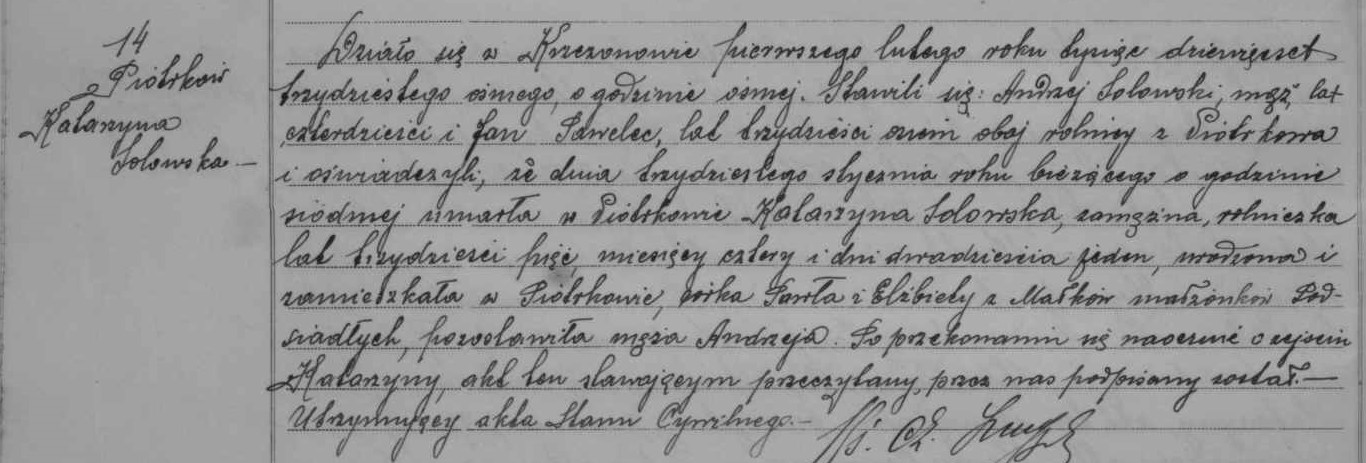 14
Piotrków
Katarzyna
Solowska —
Działo się w Krzczonowie pierwszego lutego roku tysiąc dziewięcset
trzydziestego ósmego, o godzinie ósmej. Stawili się: Andrzej Solowski, mąż, lat
czterdzieści i Jan Pawelec, lat trzydzieści osiem obaj rolnicy z Piotrkowa
i oświadczyli, że dnia trzydziestego stycznia roku bieżącego o godzinie
siódmej umarła w Piotrkowie Katarzyna Solowska, zamężna, rolniczka
lat trzydzieści pięć, miesięcy cztery i dni dwadzieścia jeden, urodzona i
zamieszkała w Piotrkowie, córka Pawła i Elżbiety z Małków małżonków Pod-
siadłych, pozostawiła męża Andrzeja. Po przekonaniu się naocznie o zejściu
Katarzyny, akt ten stawającym przeczytany, przez nas podpisany został. —
Utrzymujący akta Stanu Cywilnego. —